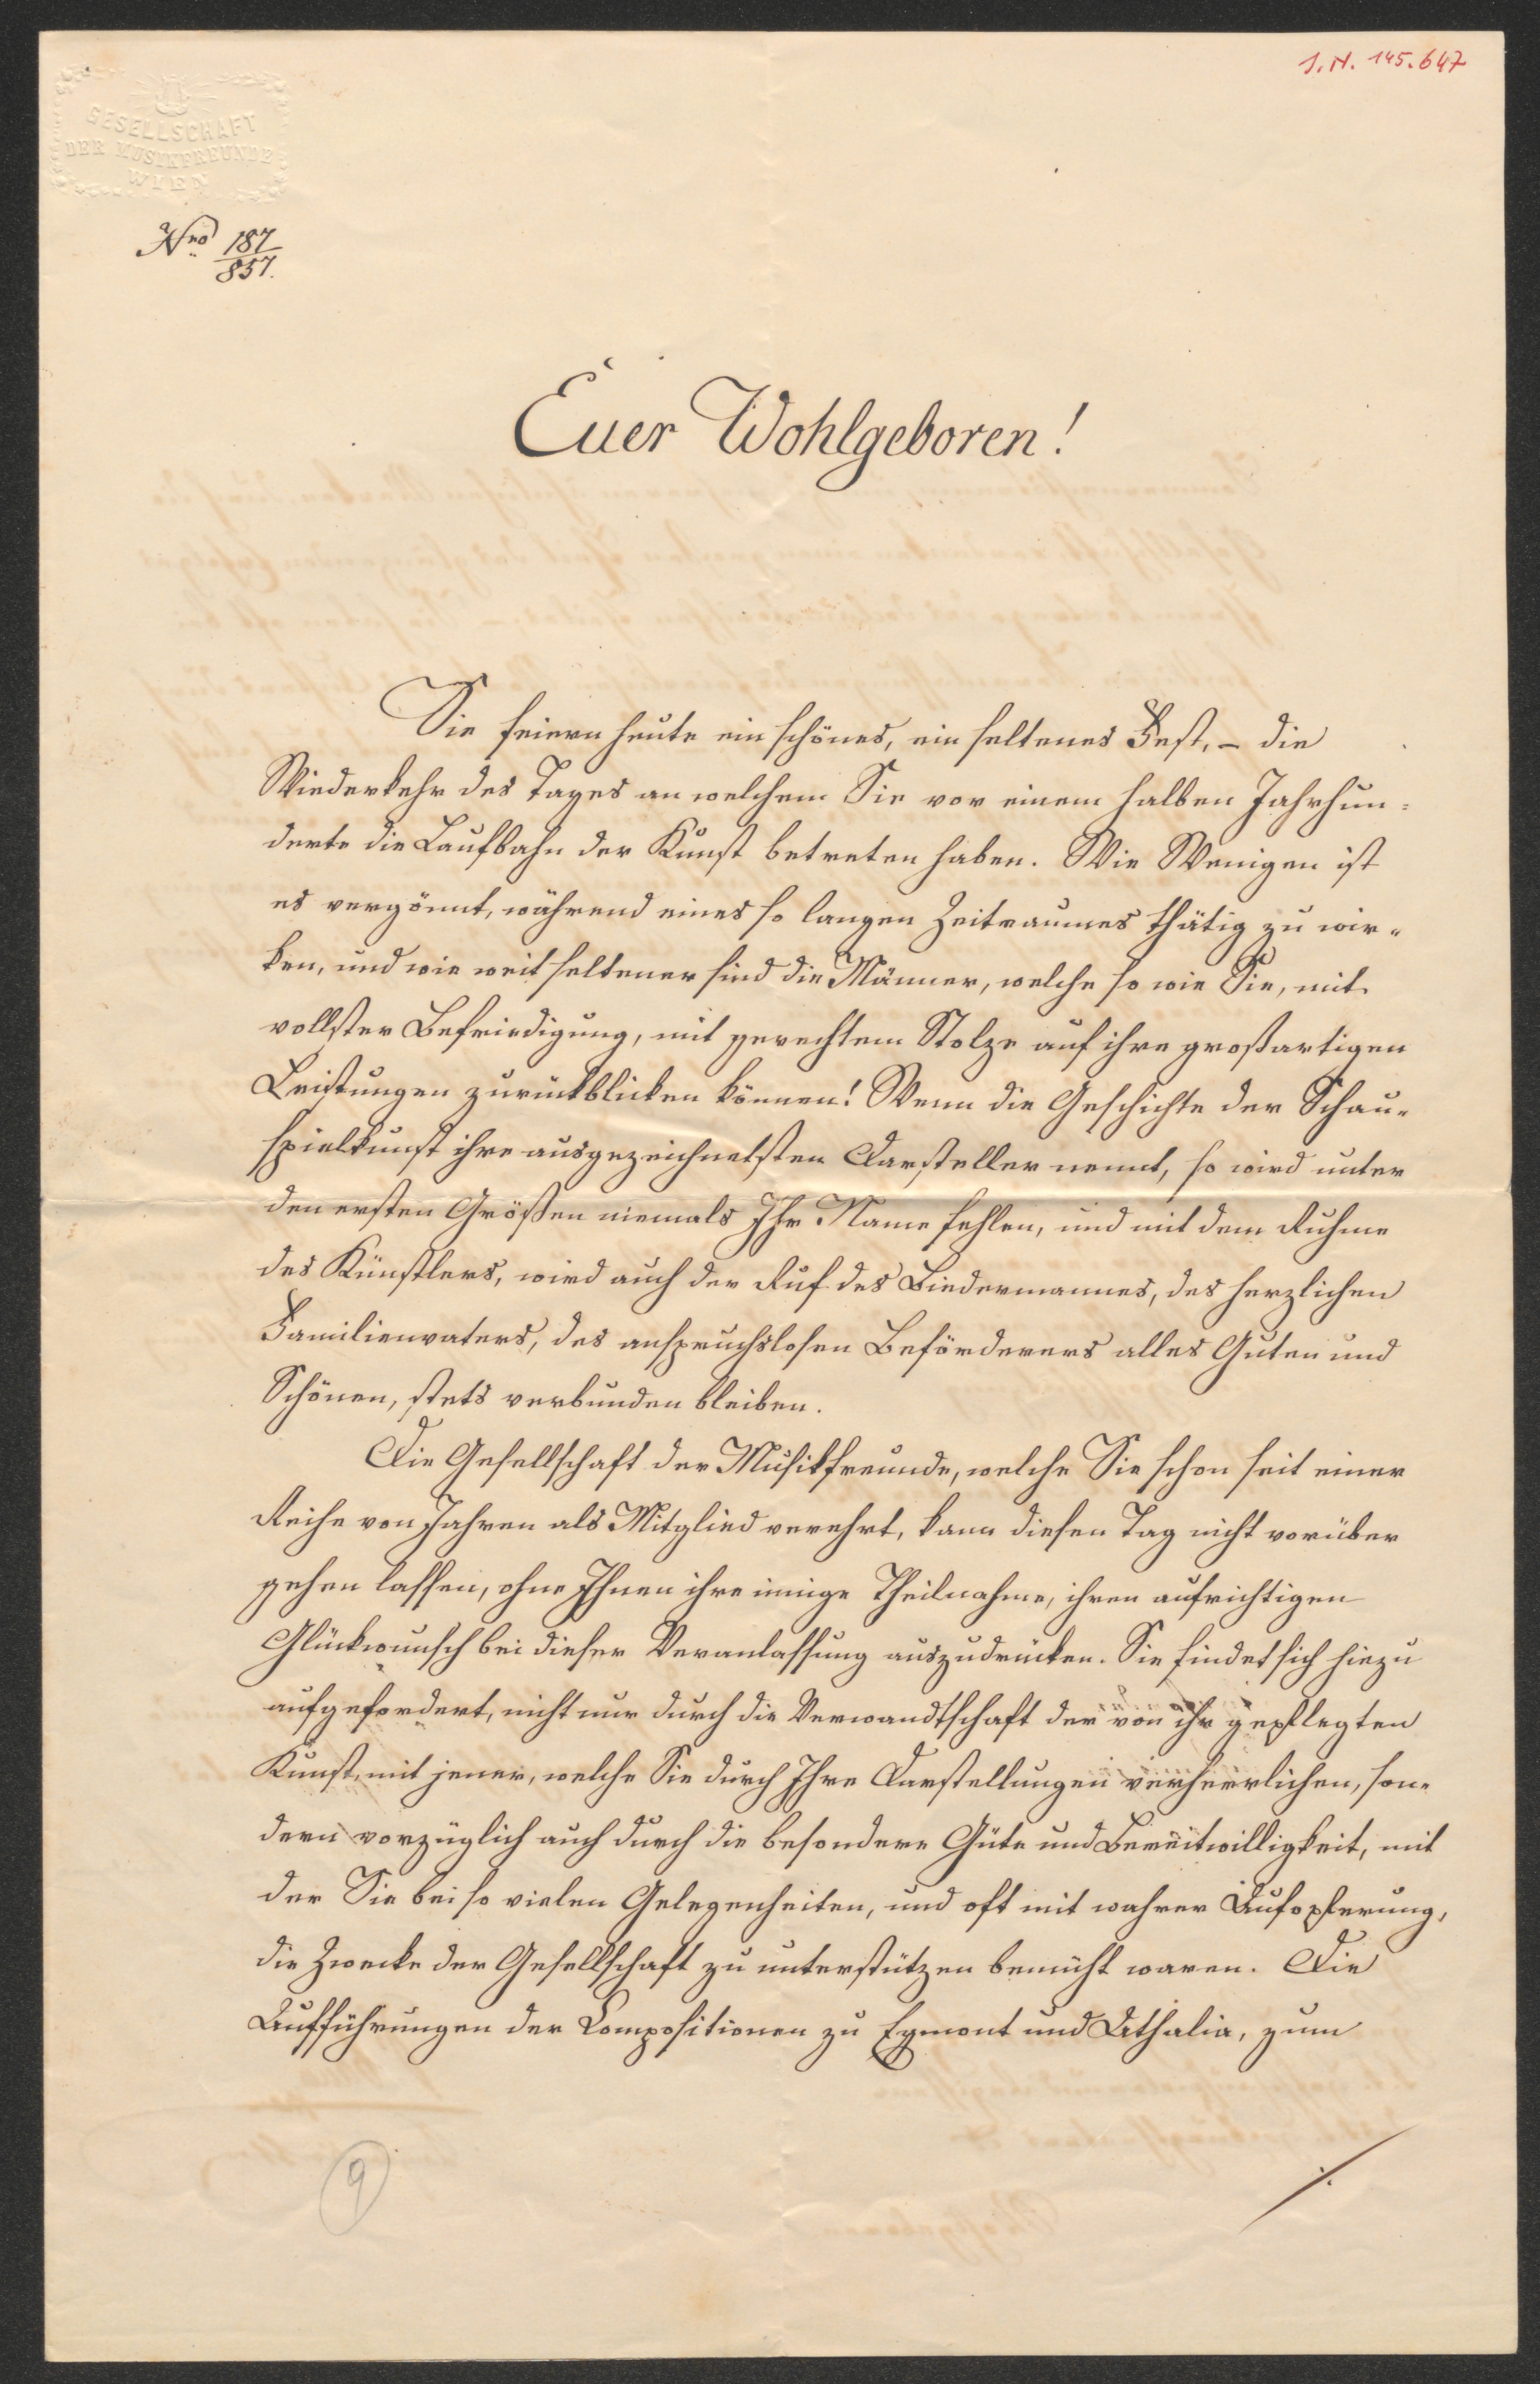 I.N. 145.647
GESELLSCHAFT
DER MUSIKFREUNDE
WIEN
Nro 187
857.
Euer Wohlgeboren!
Sie feiern heute ein schönes, ein seltenes Fest, – die
Wiederkehr des Tages an welchem Sie vor einem halben Jahrhun=
derte die Laufbahn der Kunst betreten haben. Wie Wenigen ist
es vergönnt, während eines so langen Zeitraumes thätig zu wir=
ken, und wie weit seltener sind die Männer, welche so wie Sie, mit
vollster Befriedigung, mit gerechtem Stolze auf ihre großartigen
Leistungen zurückblicken können! Wenn die Geschichte der Schau=
spielkunst ihre ausgezeichnetsten Darsteller nennt, so wird unter
den ersten Größen niemals Ihr Name fehlen, und mit dem Ruhme
des Künstlers, wird auch der Ruf des Biedermannes, des herzlichen
Familienvaters, des anspruchslosen Beförderers alles Guten und
Schönen, stets verbunden bleiben.
Die Gesellschaft der Musikfreunde, welche Sie schon seit einer
Reihe von Jahren als Mitglied verehrt, kann diesen Tag nicht vorüber
gehen lassen, ohne Ihnen ihre innige Theilnahme, ihren aufrichtigen
Glückwunsch bei dieser Veranlassung auszudrücken. Sie findet sich hiezu
aufgefordert, nicht nur durch die Verwandtschaft der von ihr gepflegten
Kunst, mit jener, welche Sie durch Ihre Darstellungen verherrlichen, son=
dern vorzüglich auch durch die besondere Güte und Bereitwilligkeit, mit
der Sie bei so vielen Gelegenheiten, und oft mit wahrer Aufopferung,
die Zwecke der Gesellschaft zu unterstützen bemüht waren. Die
Aufführungen der Compositionen zu Egmont und Athalia, zum
9
./.